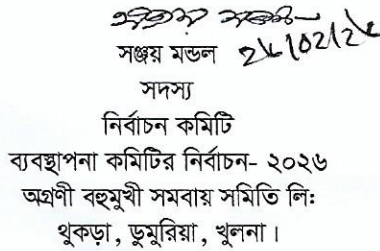 সঞ্জয় মন্ডল
সদস্য
নির্বাচন কমিটি
ব্যবস্থাপনা কমিটির নির্বাচন- ২০২৬
অগ্রণী বহুমুখী সমবায় সমিতি লি:
থুকড়া, ডুমুরিয়া, খুলনা।